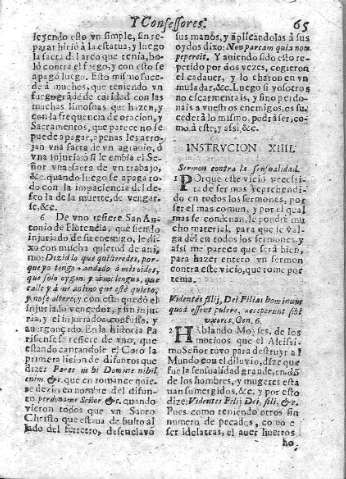 Y Confessores. 65
leyendo esto vn simple, sin re-
parar hirió a la estatua, y luego
la saeta del arco que tenia, bo-
ló contra el fuego, y con esto se
apagó luego. Esto mismo suce-
de a muchos, que teniendo vn
fuego grãde de caridad con las
muchas limosnas que hazen, y
con la frequencia de oracion, y
Sacramentos, que parece no se
puede apagar, apenas les arro-
jan vna saeta de vn agrauio, ó
vna injuria; ó si le embia el Se-
ñor vna saeta de vn trabajo,
&c. quando luego se apaga to-
do con la impaciencia del de-
seo de la muerte, de vengar-
se, &c.
6 De vno refiere San An-
tonio de Florencia, que siendo
injuriado de su enemigo, le di-
xo con mucha quietud de ani-
mo: Dezid lo que quisieredes, por-
que yo tengo
que solo oygan
calle y à mi animo que esté quieto,
y no se altere; y con esto quedó el
injuriado vencedor, y sin inju-
ria, y el injuriador confuso, y
auergonçado. En la historia Pa-
risiense se refiere de vno, que
estando cantandole el Coro la
primera licion de difuntos que
dize: Parce mihi Domine nihil
enim &c. que en romance
dezir en nombre del difun-
to perdoname Señor &c. quando
vieron todos que vn Santo
Christo que estaua de bulto al
lado del feretro, desenclavó
sus manos, y aplicandolas à sus
oydos dixo: Non parcam quia non
pepercit. Y auiendo sido esto re-
petido por dos vezes, cogieron
el cadauer, y lo echaron en vn
muladar, &c. Luego si vosotros
no escarmentais, y si no perdo-
nais a vuestros enemigos, es su-
cederà lo mismo, podrà ser, co-
mo à este, y assi &c.
INSTRVCION XIIII.
Sermon contra la sensualidad.
POrque este vicio necessi-
ta de ser mas reprehendido
en todos los sermones, por
ser el mas comun, y por el qual
mas se condenan, le pondrè mu-
cho material, para que se val-
ga del en todos los sermones, y
assi me parece que serà bien,
para hazer entero vn sermon
contra este vicio, que tome por
tema.
Videntes filij, Dei Filias hominum
quod essent pulcre, acceperunt sibi
vxores, Gen. 6.
HAblando Moyses, de los
motiuos que el Altissi-
mo Señor tuvo para destruir al
Mundo con el diluvio, dize que
fue la sensualidad grande, en
de los hombres, y mugeres esta
uan sumergidos, &c, y por esto
dize: Videntes Filij Dei, fili, &c.
Pues como teniendo otros sin
numero de pecados, como e
ser idolatras, el auer huertos
ho,